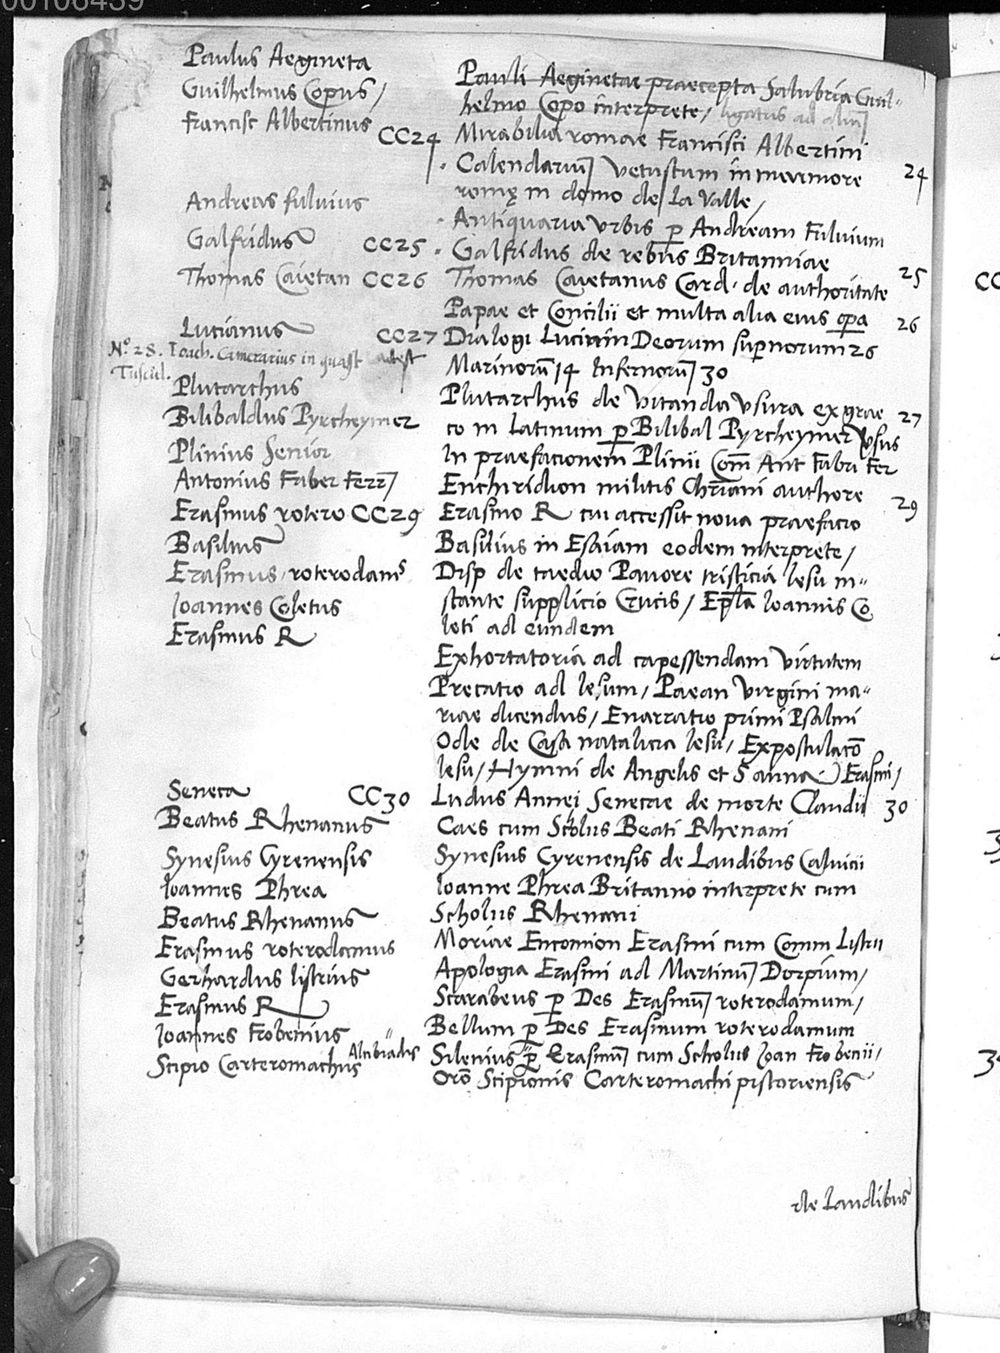 00106439
Paulus Aegineta
Pauli Aeginetae praecepta Salubria Guil-
Guilhelmus Copus/
helmo Copo interprete/ ligatus ad
Francisc Albertinus CC24
Mirabilia romae Francisci Albertini
Calendariu vetustum in marmore 24
romę in domo de la Valle/
Andreas fulvius
Antiquaria Urbis p Andream Fulvium
Galfridus CC25
Galfridus de rebus Britanniae
Thomas Caietan CC26
Thomas Caietanus Card. de authoritate 25
Papae et Concilii et multa alia eius opa
Lucianus CC27
Dialogi Luciani Deorum supnorum 26 26
No 28. Ioach. Camerarius in quaest
Tuscul.
Marinoru 14 Infernoru 30
Plutarchus
Plutarchus de vitanda usura ex grae 27
Bilibaldus Pyrcheymer
co in Latinum p Bilibal Pyrcheymer
Plinius Senior
In praefacionem Plinii Com Ant Fabri Fer
Antonius Faber Ferr/
Enchiridion militis Chriani authore
Erasmus rotero CC29
Erasmo R cui accessit nova praefacio 29
Basilius
Basilius in Esaiam eodem interprete/
Erasmus roterodams
Disp de taedio Pavore tristicia Iesu in-
Ioannes Coletus
stante supplicio Crucis/ Epla Ioannis Co
Erasmus R
leti ad eundem
Exhortatoria ad capessendam virtutem
Precatio ad Iesum/ Paean virgini ma-
riae dicendus/ Enarratio primi Psalmi
Ode de Casa natalicia Iesu/ Expostulaco
Iesu/ Hymni de Angelis et S anna Erasmi/
Seneca CC30
Ludus Annei Senecae de morte Claudii 30
Beatus Rhenanus
Caes cum Scolus Beati Rhenani
Synesius Cyrenensis
Synesius Cyrenensis de Laudibus Calvicii
Ioannes Phrea
Ioanne Phrea Britanno interprete cum
Beatus Rhenanus
Scholiis Rhenani
Erasmus roterodamus
Moriae Encomion Erasmi cum Comm Listrii
Gerhardus listrius
Apologia Erasmi ad Martinu Dorpium/
Erasmus R
Scarabeus p Des Erasmu roterodamum/
Ioannes Frobenius
Bellum p Des Erasmum roterodamum
Alcibiadis
Silenius p Erasmu cum Scholiis Ioan Frobenii/
Scipio Carteromachus
Oro Scipionis Carteromachi pistoriensis
de Laudibus